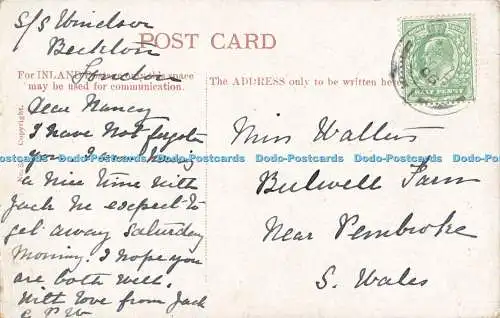 S/S Windsor
Beckton
London
POST CARD
For INLAND Postage only this space
may be used for communication.
The ADDRESS only to be written here
HALF PENNY
Copyright.
Dear Nancy
I have not forgotten
you I am having
a nice time with
Jack he expects to
get away Saturday
Morning. I hope you
are both well.
With love from Jack
Miss Watkins
Bulwell Farm
Near Pembroke
S. Wales
Dodo-Postcards Dodo-Postcards Dodo-Postcards Dodo-Postcards Dodo-Postcards Dodo-Postcards